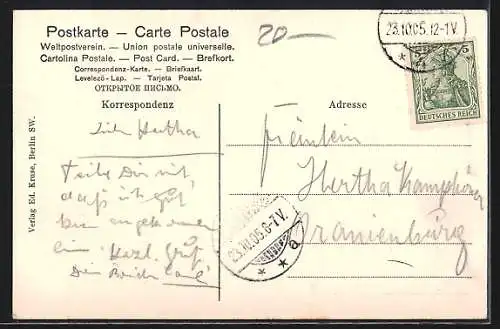 Postkarte — Carte Postale
Weltpostverein. — Union postale universelle.
Cartolina Postale. — Post Card. — Brefkort.
Correspondenz-Karte. — Briefkaart.
Levelező-Lap. — Tarjeta Postal.
ОТКРЫТОЕ ПИСЬМО.
20—
23.10.05.12-1V.
5 5
DEUTSCHES REICH
Korrespondenz
Adresse
Liebe Hertha
Teile Dir mit,
daß ich gut
hier angekommen
Herzl. Gruß
Dein Bruder
Fräulein
Hertha
Oranienburg
23.10.05.6-7V.
* * a
Verlag Ed. Kruse, Berlin SW.